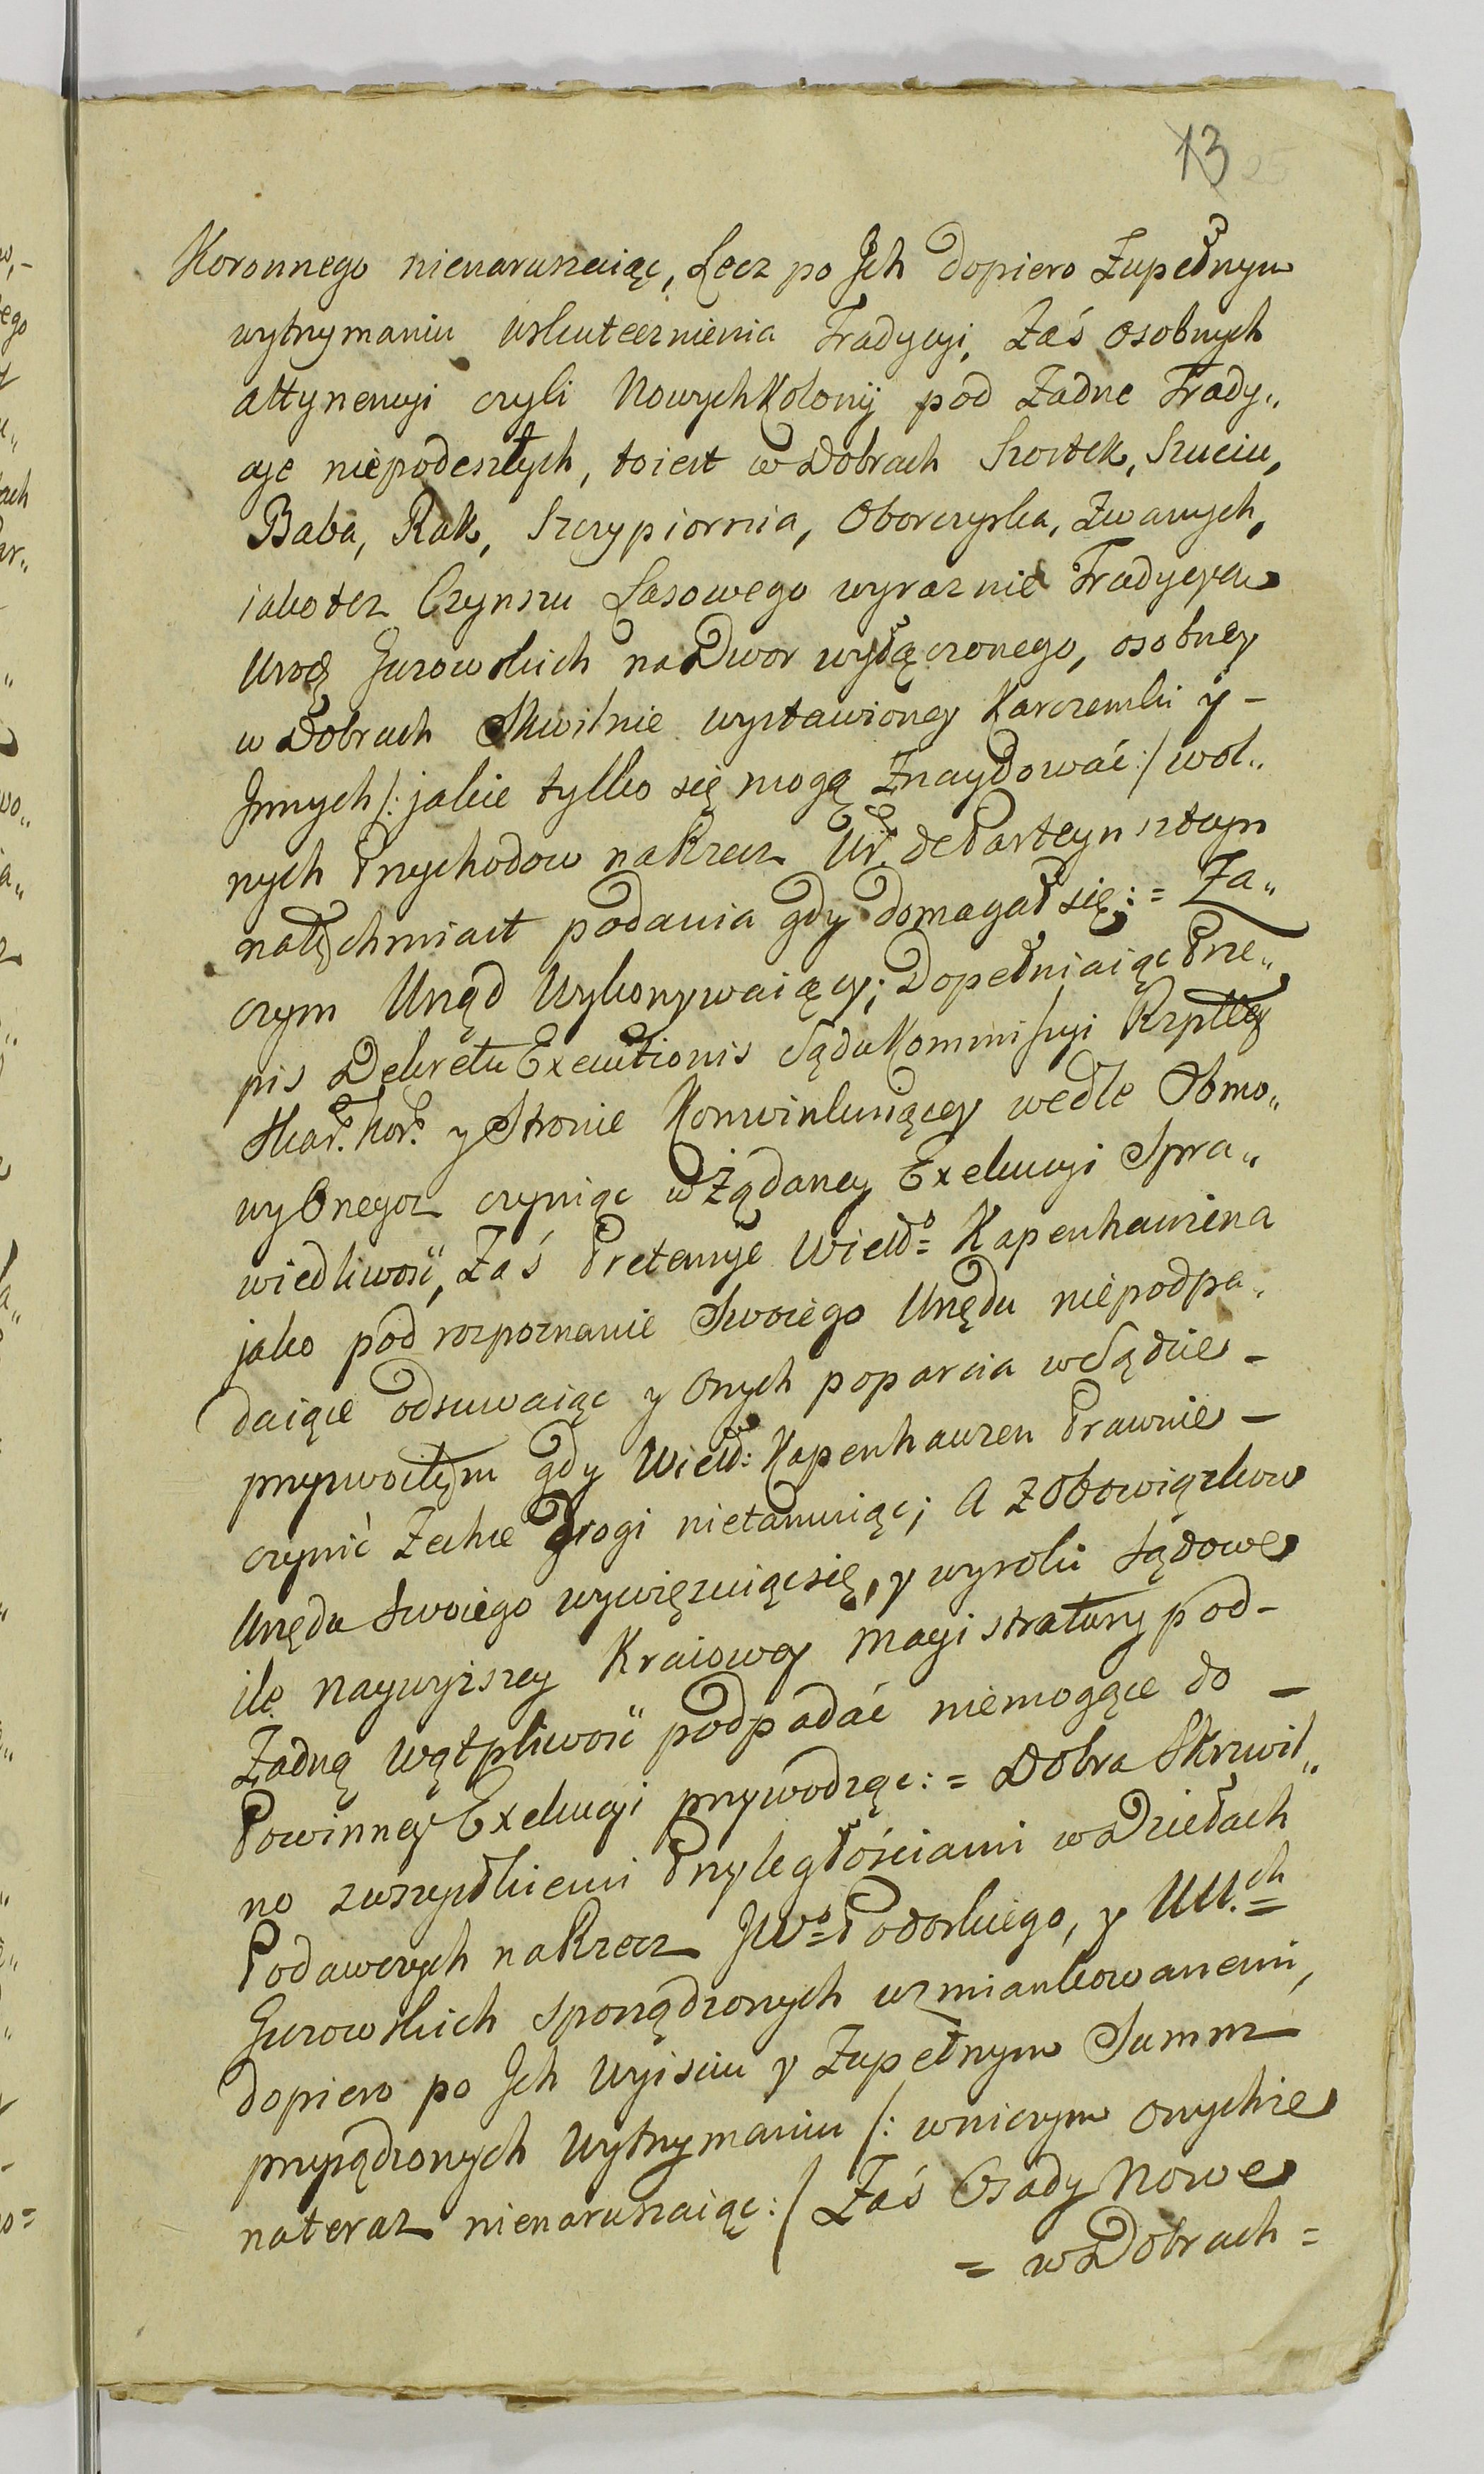 13 25
Koronnego nienaruszaiąc, Lecz po Jch dopiero Zupełnym
wytrzymaniu uskutecznienia Tradycyi, Zaś osobnych
attynencyi czyli Nowych Kolonij pod Żadne Trady„
cye niepodeszłych, toiest w Dobrach Szostek, Szuciu,
Baba, Rak, Szczypiornia, Oborczyska, Zwanych,
iakotez Czynszu Lasowego wyraznie Tradycyą
Uroḍ Gurowskich na Dwor wyłączonego, osobney
w Dobrach Skwilnie wystawioney Karczemki y -
Jnnych /: jakie tylko się mogą Znaydować :/ wol„
nych Przychodow na Rzecz Ur. de Parteyn sztayn
natychmiast podania gdy domagał się: = Za„
czym Urząd Wykonywaiący; Dopełniaiąc Prze„
pis Dekretu Executionis Sądu Kommissyi Rzpltey
Skar: Kor: y Stronie Konwinkuiącey wedle Obmo„
wy Onegoz czyniąc w Żądaney Exekucyi Spra„
wiedliwość, Zaś Pretensye Wield= Kapenhauzena
jako pod rozpoznanie Swoiego Urzędu niepodpa„
daiące odsuwaiąc y Onych poparcia w Sądzie -
przyzwoitym gdy Wield: Kapenhauzen Prawnie -
czynić Zechce Drogi nietamuiąc; A z Obowiązkow
Urzędu Swoiego wywięzuiąc się, y wyroki Sądowe
ile naywyzszey Kraiowey Magistratury pod -
Żadną wątpliwość podpadać niemogące do -
Powinney Exekucyi przywodząc: = Dobra Skrwil„
no zwszystkiemi Przyległościami w Działach
Podawczych na Rzecz JWo= Podoskiego, y UU.ch
Gurowskich sporządzonych wzmiankowanemi,
dopiero po Jch Wyisciu y Zupełnym Summ
przysądzonych Wytrzymaniu /: wniczym onychze
nateraz nienaruszaiąc :/ Zaś Osady Nowe
= w Dobrach =